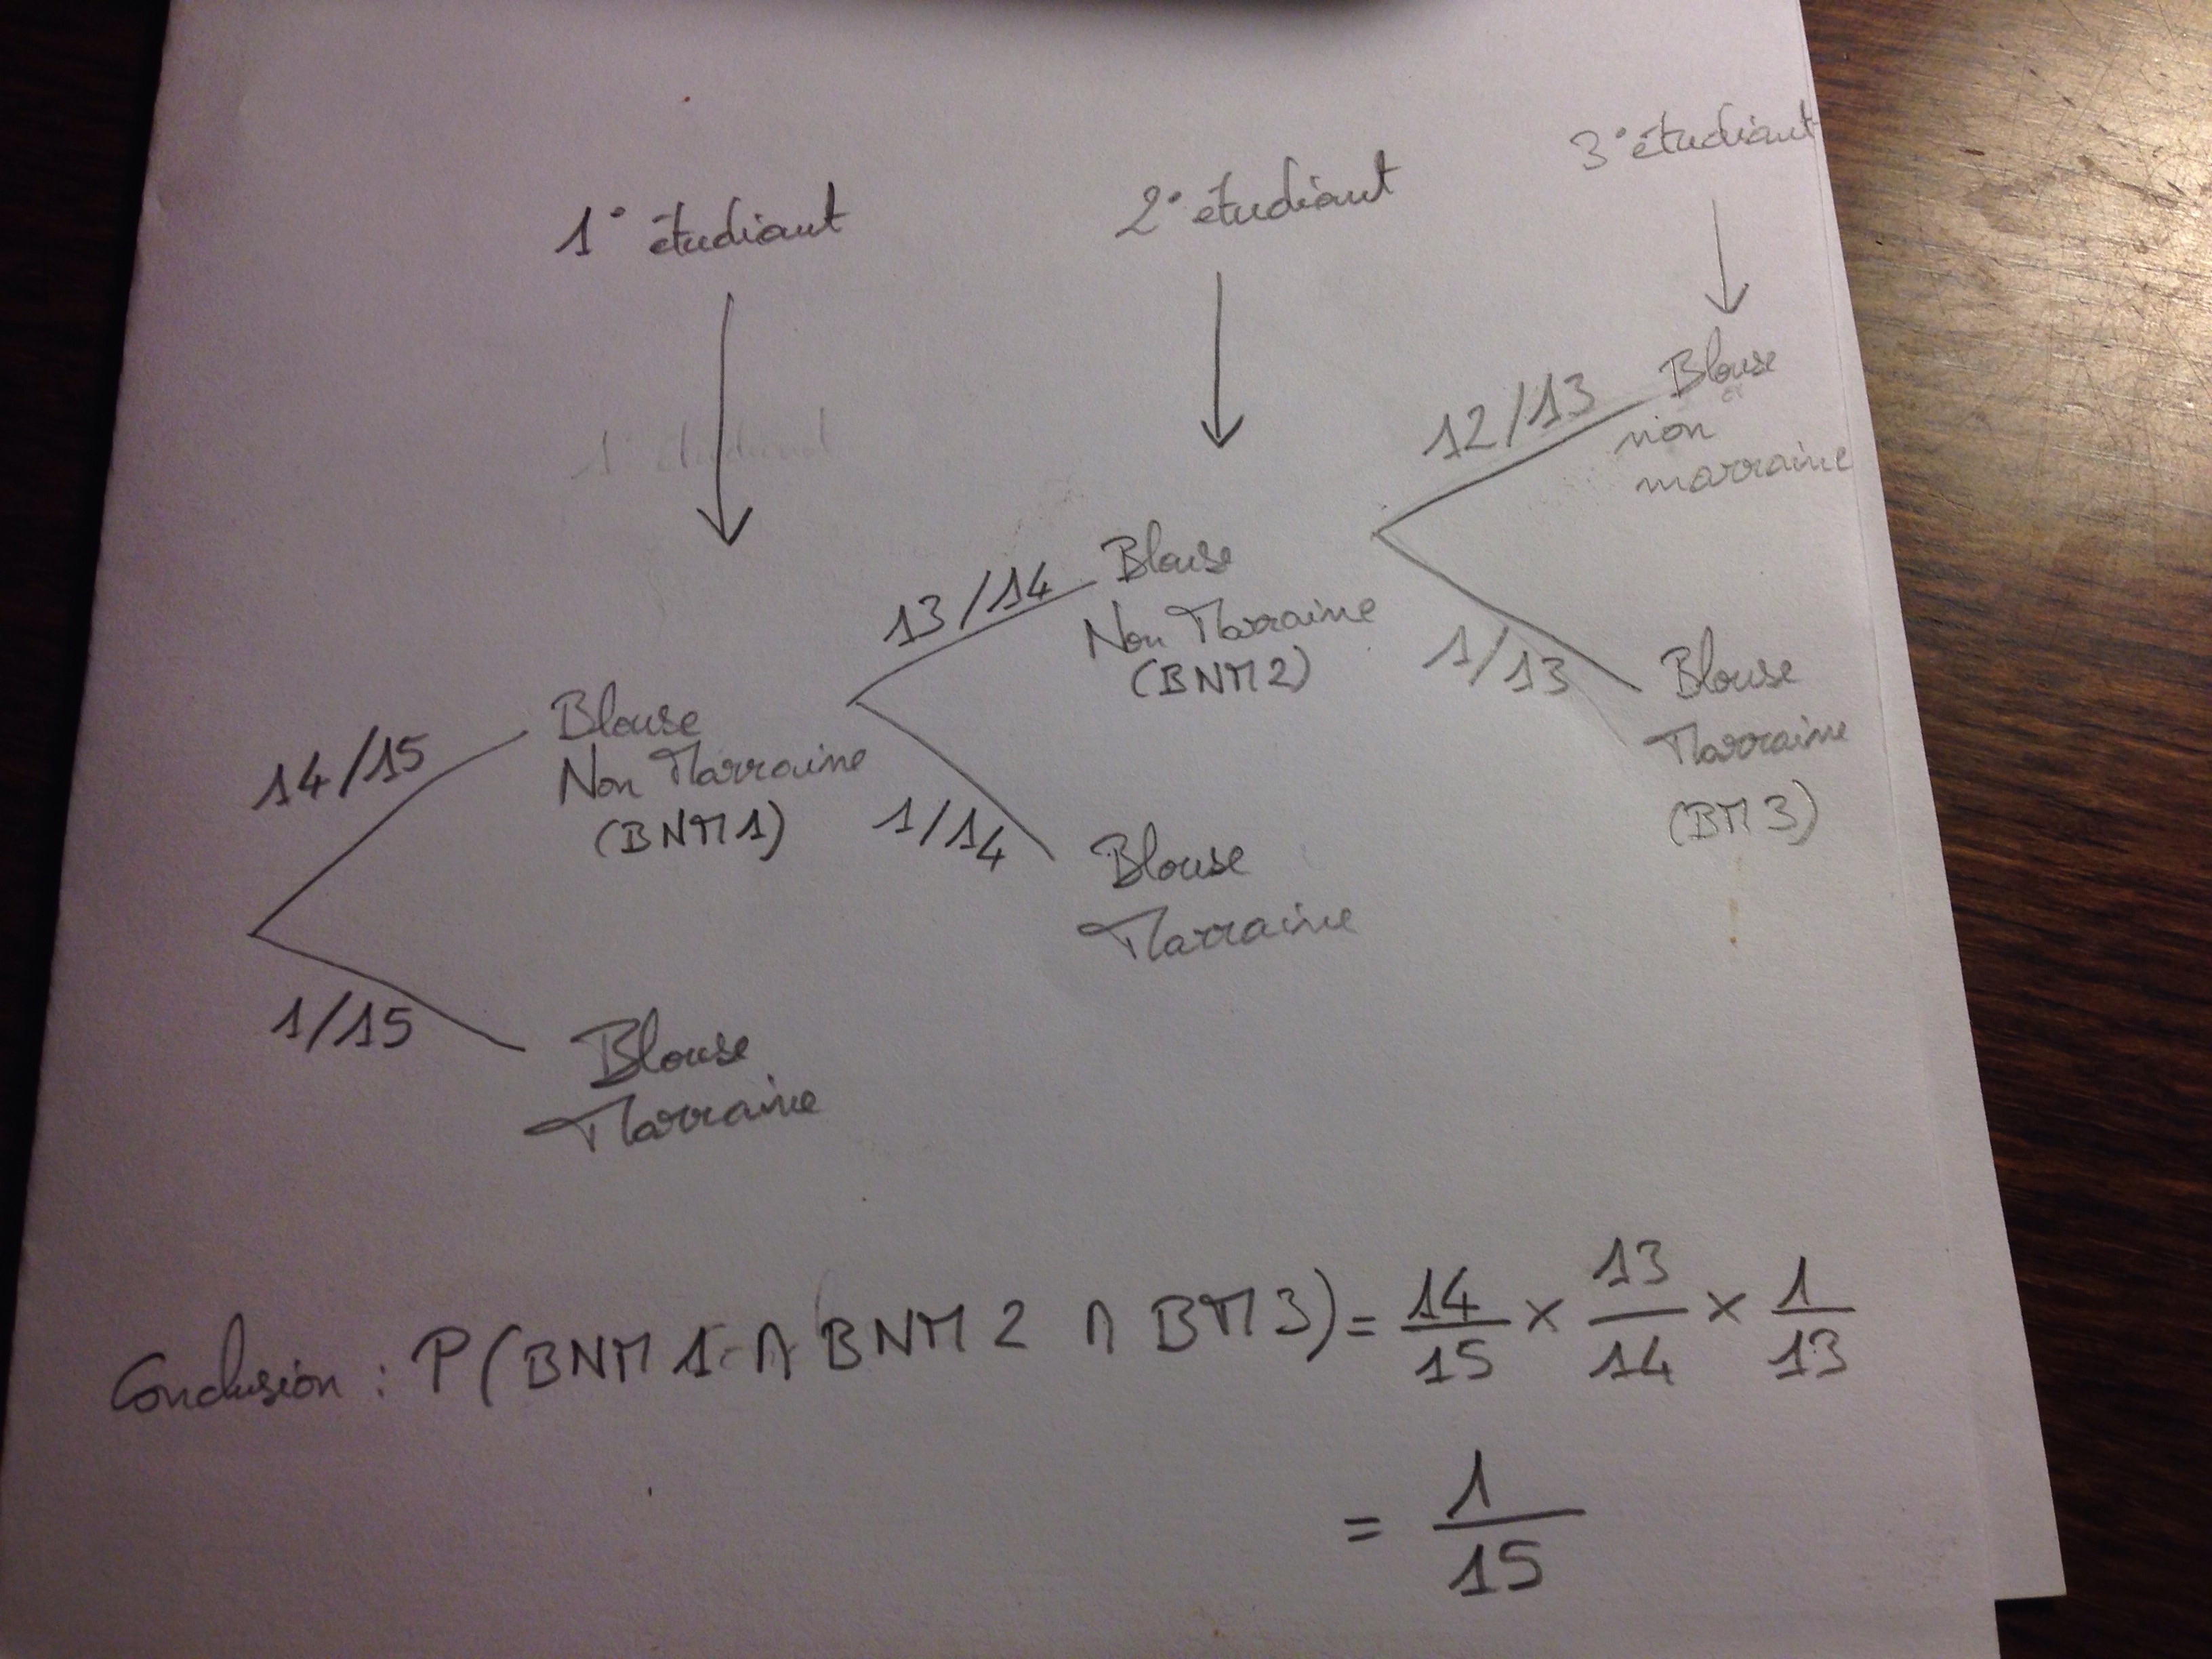 1° étudiant
2° étudiant
3° étudiant
1° étudiant
12/13
Blouse
non
marraine
13/14
Blouse
Non Marraine
(BNM2)
1/13
Blouse
Marraine
(BM3)
14/15
Blouse
Non Marraine
(BNM1)
1/14
Blouse
Marraine
1/15
Blouse
Marraine
Conclusion : P(BNM1 ∩ BNM2 ∩ BM3) = 14/15 × 13/14 × 1/13
= 1/15